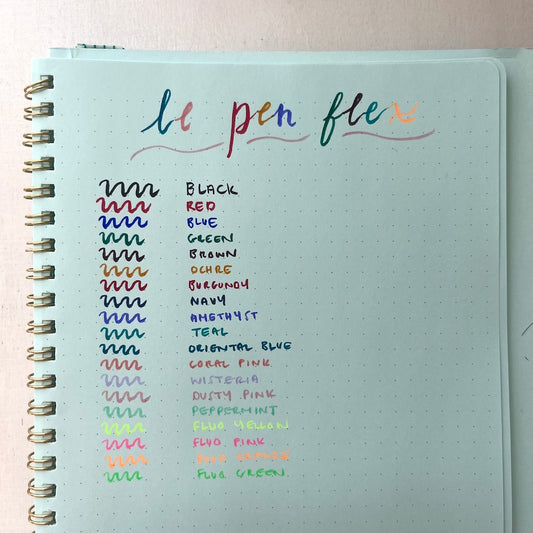 le pen flex
BLACK
RED
BLUE
GREEN
BROWN
OCHRE
BURGUNDY
NAVY
AMETHYST
TEAL
ORIENTAL BLUE
CORAL PINK
WISTERIA
DUSTY PINK
PEPPERMINT
FLUO YELLOW
FLUO PINK
FLUO ORANGE
FLUO GREEN